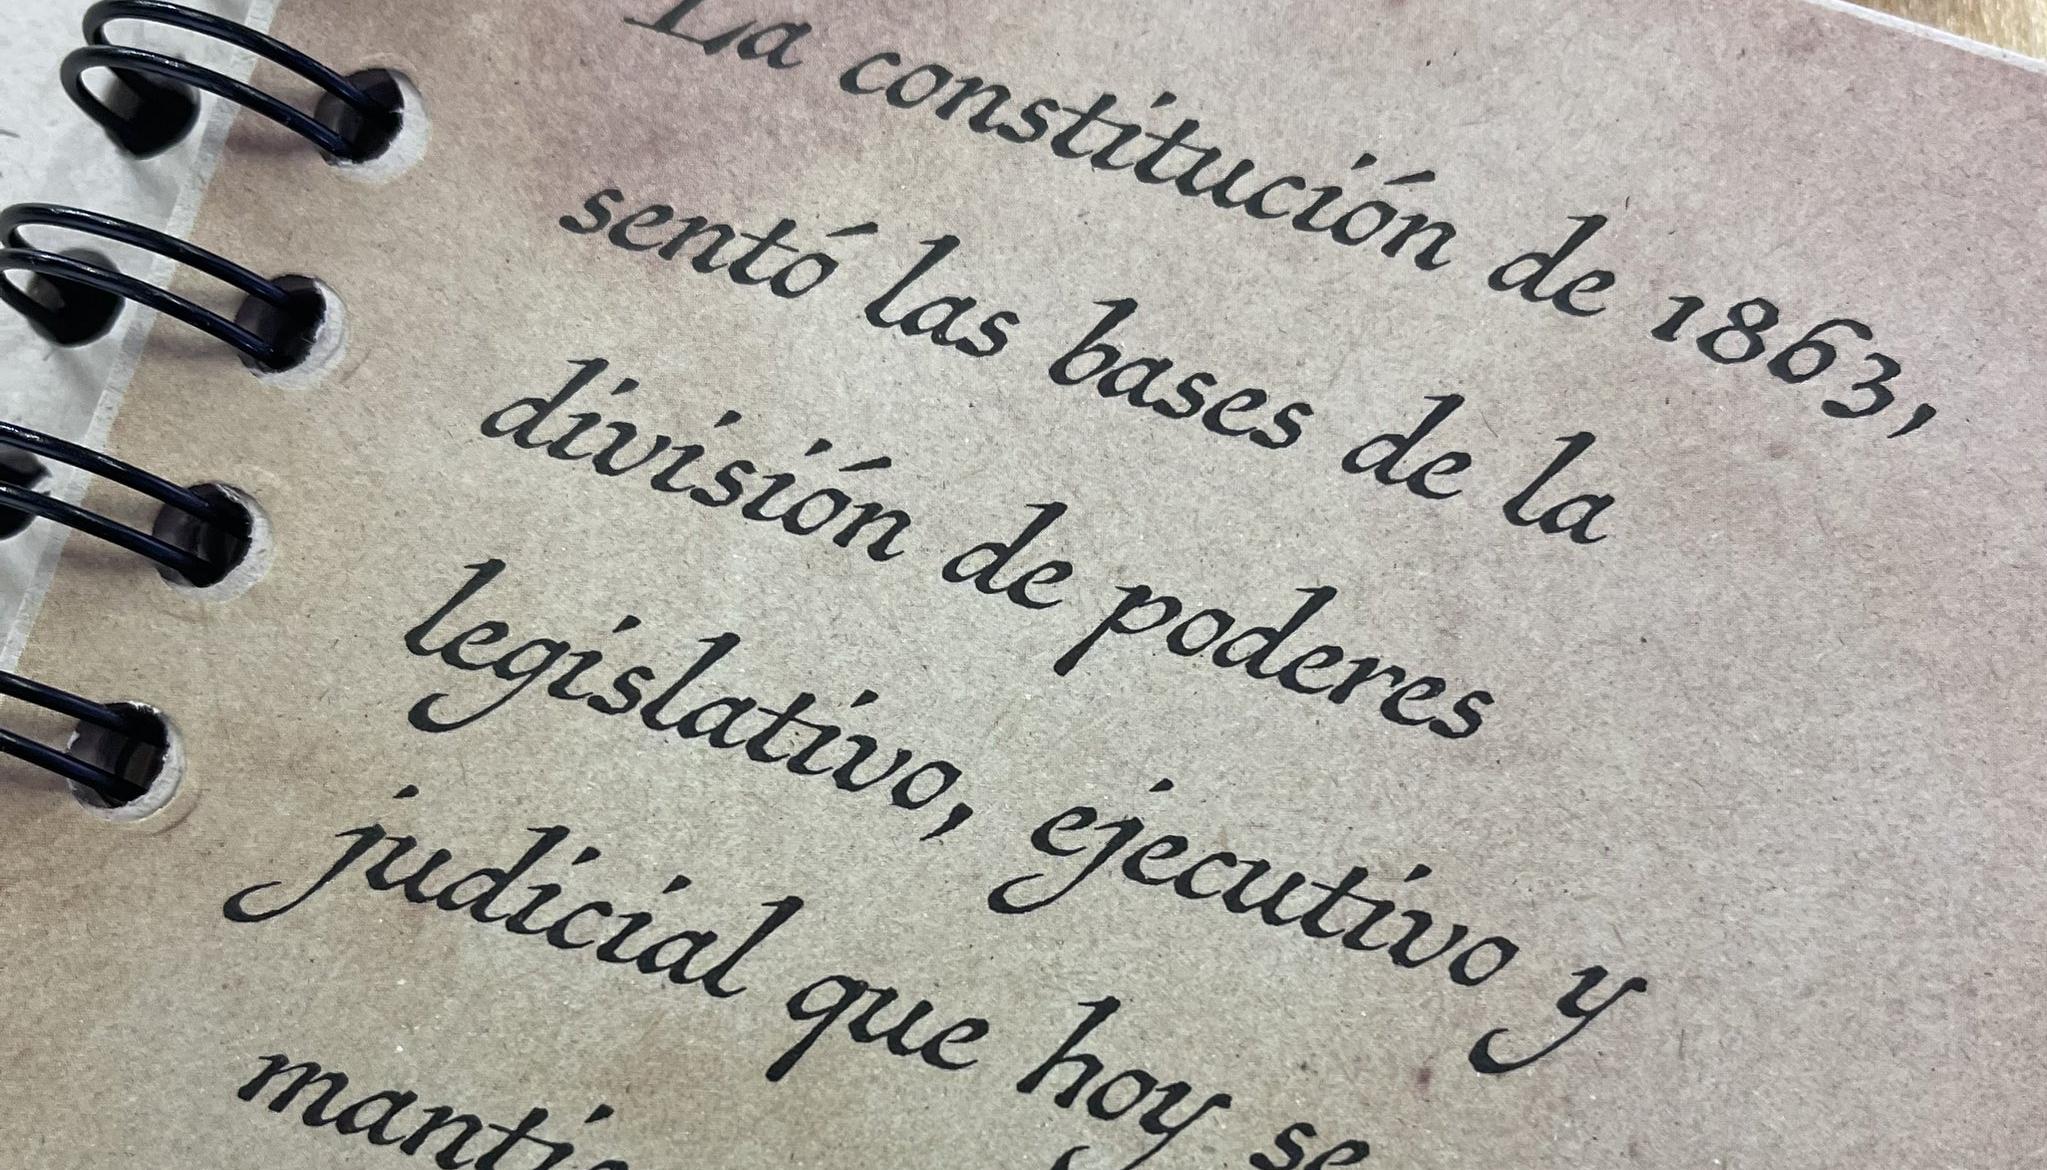 La constitución de 1863,
sentó las bases de la
división de poderes
legislativo, ejecutivo y
judicial que hoy se